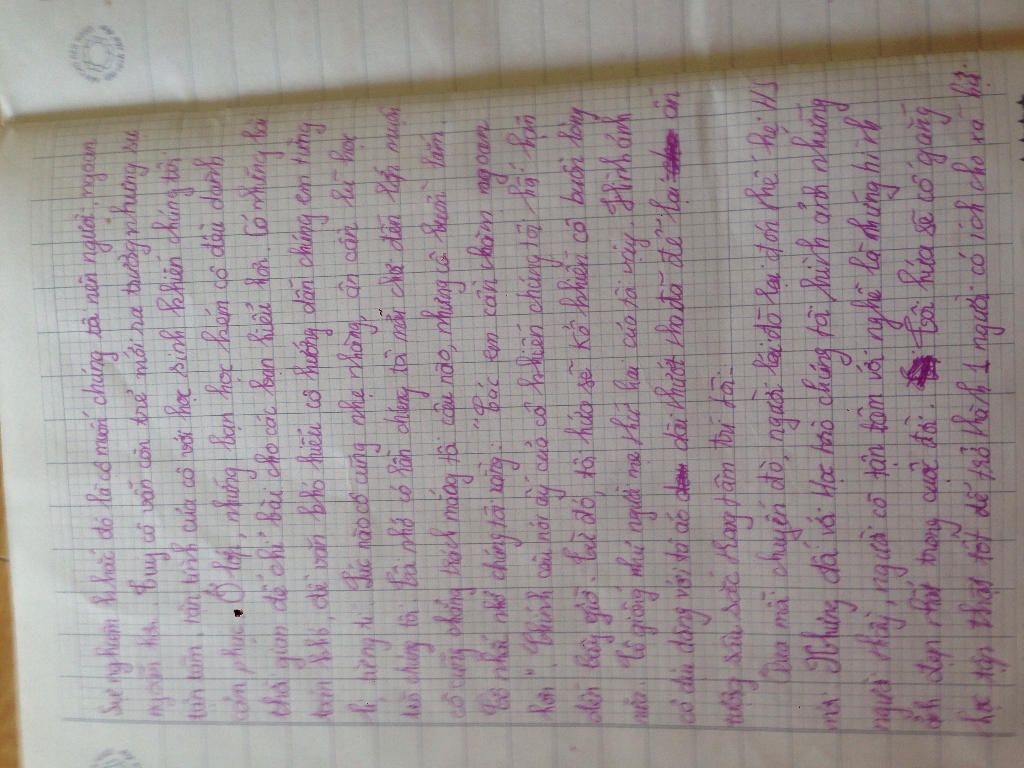 Sự nghiêm khắc đó là cô muốn chúng tôi nên người, ngoan
ngoãn hơn. Tuy cô vẫn còn trẻ mới ra trường nhưng sự
tận tâm, tận tình của cô với học sinh khiến chúng tôi
cảm phục. Ở lớp, những bạn học kém cô đều dành
thời gian để chỉ bài cho các bạn hiểu hơn. Có những bài
toán khó, đề văn khó hiểu cô hướng dẫn chúng em từng
li, từng tí. Lúc nào cô cũng nhẹ nhàng, ân cần khi học
với chúng tôi. Tôi nhớ có lần chúng tôi mải chơi đến lớp muộn
cô cũng chẳng trách mắng tôi câu nào, nhưng cô buồn lắm.
Cô nhắc nhở chúng tôi rằng: "Các em cần chăm ngoan
hơn". Chính câu nói ấy của cô khiến chúng tôi nhớ hoài
đến bây giờ. Từ đó, tôi hứa sẽ không khiến cô buồn lòng
nữa. Cô giống như người mẹ thứ hai của tôi vậy. Hình ảnh
cô dịu dàng với tà áo dài thướt tha đã để lại ấn
tượng sâu sắc trong tâm trí tôi.
Qua mỗi chuyến đò, người lái đò lại đón thế hệ HS
mới. Nhưng đối với học trò chúng tôi, hình ảnh những
người thầy, người cô tận tâm với nghề là những hình
ảnh đẹp nhất trong cuộc đời. Tôi hứa sẽ cố gắng
học tập thật tốt để trở thành 1 người có ích cho xã hội.